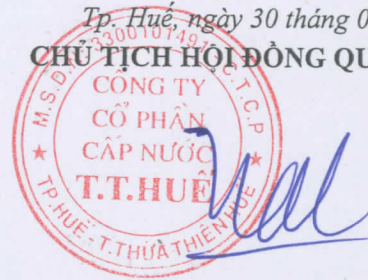 Tp. Huế, ngày 30 tháng 0
CHỦ TỊCH HỘI ĐỒNG QU
M.S.D.N: 3300101491 C.T.C.P
CÔNG TY
CỔ PHẦN
CẤP NƯỚC
T.T.HUẾ
TP.HUẾ - T.THỪA THIÊN HUẾ